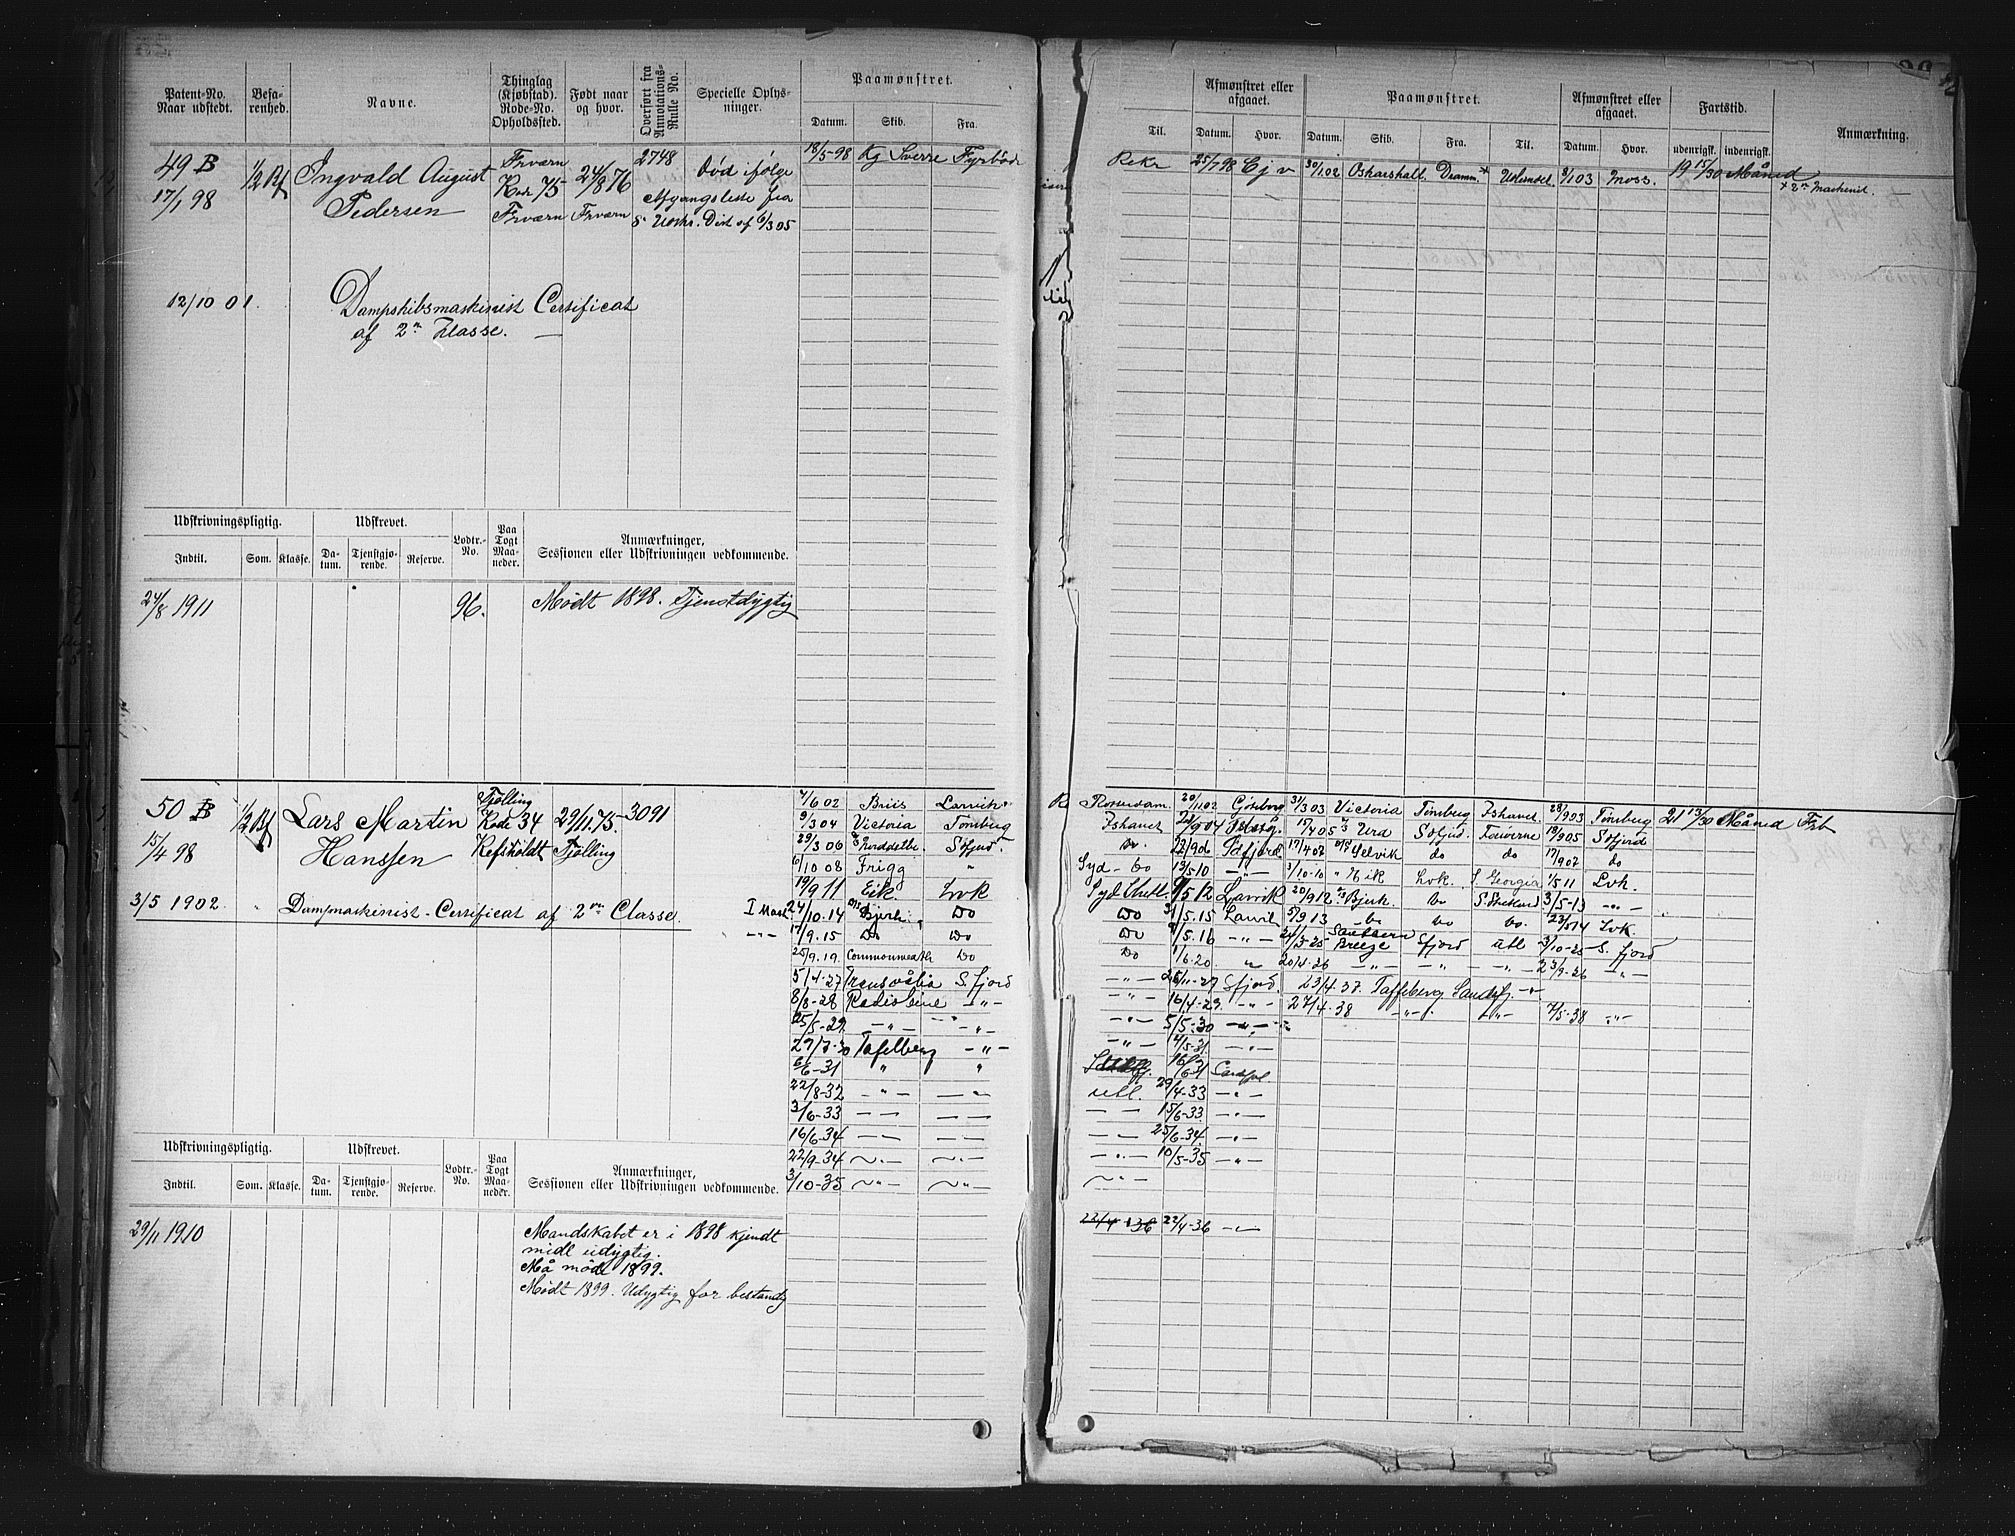 Patent-No. Naar udstedt. Befarenhed. Navne. Thinglag (Kjøbstad). Rode-No. Opholdssted. Født naar og hvor. Overført fra Annotations-Rulle No. Specielle Oplysninger. Paamønstret.
Datum. Skib. Fra.
Afmønstret eller afgaaet. Paamønstret. Afmønstret eller afgaaet. Fartstid. Anmærkning.
Til. Datum. Hvor. Datum. Skib. Fra. Til. Datum. Hvor. udenrigsk. indenrigsk.
49 B 1/2 Bf Ingvald August Frværn 24/8 76 2748 Død ifølge 18/5-98 Kg Sverre Fyrbød
17/1 98 Pedersen Rode 75 Afgangsliste fra
Frværn Frværn Udskr. Dist af 6/3 05
Rekr 25/7 98 Ej v 30/1 02 Oskarshall. Dramm. Udlandet. 8/1 03 Moss. 19 15/30 Måned
x 2den Maskinist.
12/10 01. Dampskibsmaskinist Certificat
af 2n Klasse. —
Udskrivningspligtig. Udskrevet. Lodtr.-No. Paa Togt Maaneder. Anmærkninger, Sessionen eller Udskrivningen vedkommende.
Indtil. Som. Klasse. Datum. Tjenstgjørende. Reserve.
24/8 1911 96. Mødt 1898. Tjenstdygtig
50 B 1/2 Bf Lars Martin Tjølling 29/11.75. 3091
15/4 98 Hanssen Rode 34 Tjølling
Refskoldt
3/5 1902 " Dampmaskinist-Certificat af 2den Classe. I Mask
7/6 02 Briis Larvik
9/3 04 Victoria Tønsberg
29/3 06 Sfjord
6/10 08 Frigg "
19/9 11 Eik Lvk
24/10.14 Bjerk Do
17/9.15 Do Do
25/9.19. Commonwealth Do
5/4-27 S. fjord
8/8-28 — " —
25/5-29. — " — — " —
27/7-30 Tafelberg — " —
6/6-31 " "
22/8-32 — " — — " —
3/6-33 — — — —
16/6-34 — — — —
22/9-34 — " — — " —
3/10-35 — " — — " —
Rotterdam. 20/11 02 Gøteborg 31/3 03 Victoria Tønsberg Ishavet 28/9 03 Tønsberg 21 13/30 Måned Fyrb
Ishavet 17/4 05 Ura Sofjord. 19/9 05 Sofjord
do 17/4 07 Selvik do do 17/9 07 do
Syd - do 13/5-10 — " — 1/10-10 " Eik Lvk. S. Georgia 1/5 11 Lvk.
Syd Shetl 9/5 12 Larvik 20/9 12 Bjerk do S. Shetland 3/5-13 — " —
Do 3/5.15 Larvik 5/9 13 do do do. 23/5 14 Lvk.
Do 8/5.16 — " — Southern Breeze Sfjord utl 3/10-25 S. fjord
Do 1/6.20. " 20/4-26 — " — — " — — " — 23/9-26 — " —
— " — 26/11-27 Sfjord. 23/4.37. Taffelberg Sandefj. — " —
— " — 16/4-29. — " — 27/4-38 — " — — " — 7/5-38 — " —
— " — 5/5-30 — " —
— " — 4/5-31 — " —
utl. 29/4-33 — " —
— — 15/6-33 — " —
— — 25/6-34. — " —
— " — 10/5-35 — " —
— " —
22/4-36 22/4-36 — " —
Udskrivningspligtig. Udskrevet. Lodtr.-No. Paa Togt Maaneder. Anmærkninger, Sessionen eller Udskrivningen vedkommende.
Indtil. Som. Klasse. Datum. Tjenstgjørende. Reserve.
29/11 1910 Mandskabet er i 1898 kjendt
midl udygtig.
Må møde 1899.
Mødt 1899. Udygtig for bestandig